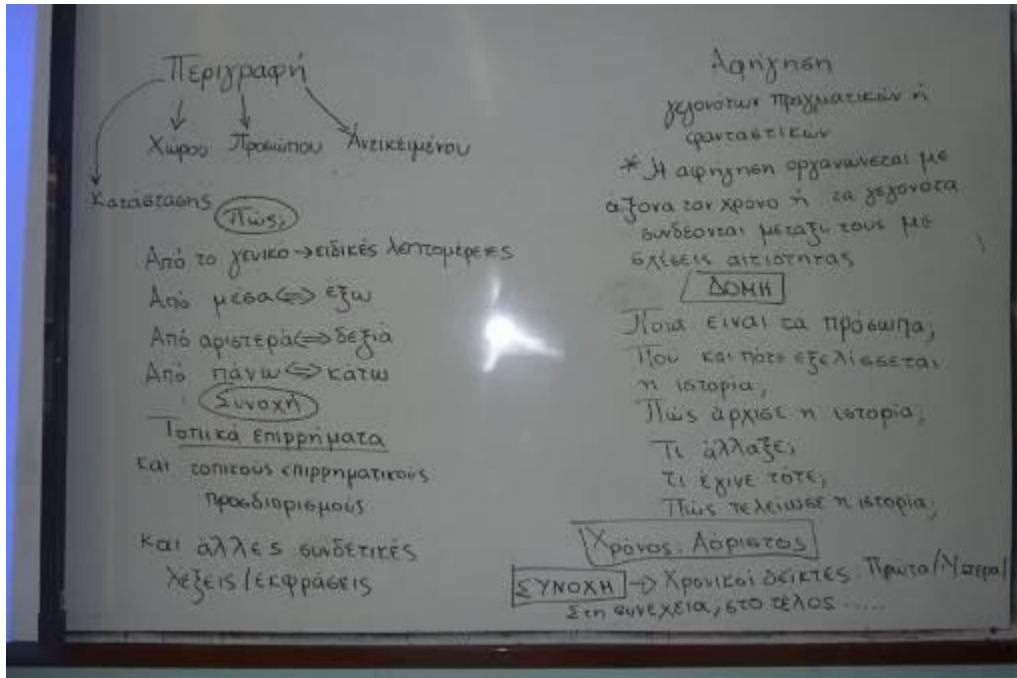 Περιγραφή
Χώρου Προσώπου Αντικειμένου
Κατάστασης
Πώς;
Από το γενικο → ειδικές λεπτομέρειες
Από μέσα ⇔ έξω
Από αριστερά ⇔ δεξιά
Από πάνω ⇔ κάτω
Συνοχή
Τοπικά επιρρήματα
και τοπικούς επιρρηματικούς
προσδιορισμούς
και άλλες συνδετικές
λέξεις / εκφράσεις
Αφήγηση
γεγονότων πραγματικών ή
φανταστικών
* Η αφήγηση οργανώνεται με
άξονα τον χρόνο ή τα γεγονότα
συνδέονται μεταξύ τους με
σχέσεις αιτιότητας
ΔΟΜΗ
Ποια ειναι τα πρόσωπα;
Που και πότε εξελίσσεται
η ιστορία;
Πώς άρχισε η ιστορία;
Τι άλλαξε;
Τι έγινε τότε;
Πώς τελειωσε η ιστορία;
Χρόνος: Αόριστος
ΣΥΝΟΧΗ → Χρονικοί δείκτες Πρωτα/Ύστερα/
Στη συνεχεια, στο τέλος .....